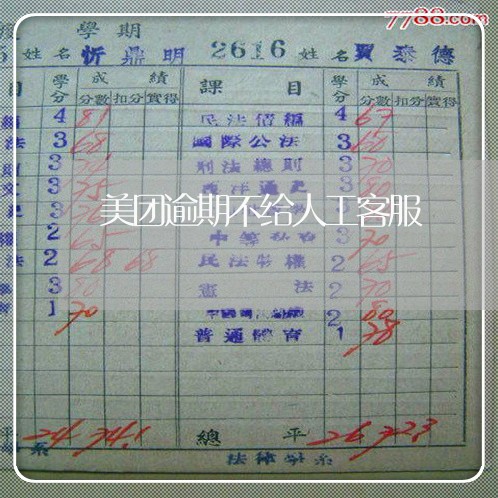 7788.com
學期
姓名 忻鼎明 2616 姓名 賈泰德
目 學分 成績 課目 學分 成績
分數 扣分 實得 分數 扣分 實得
4 81 民法債編 4 67
法 3 68 國際公法 3 60
3 刑法總則 3 70
3 75 西洋通史 3
美团逾期不给人工客服
2 65 3 70
法 2 68 68 民法物權 2 65
3 80 憲法 2 70
1 70 2 80
普通體育 1 78
平 24 74.1 總平 26 72.3
系 法律學系